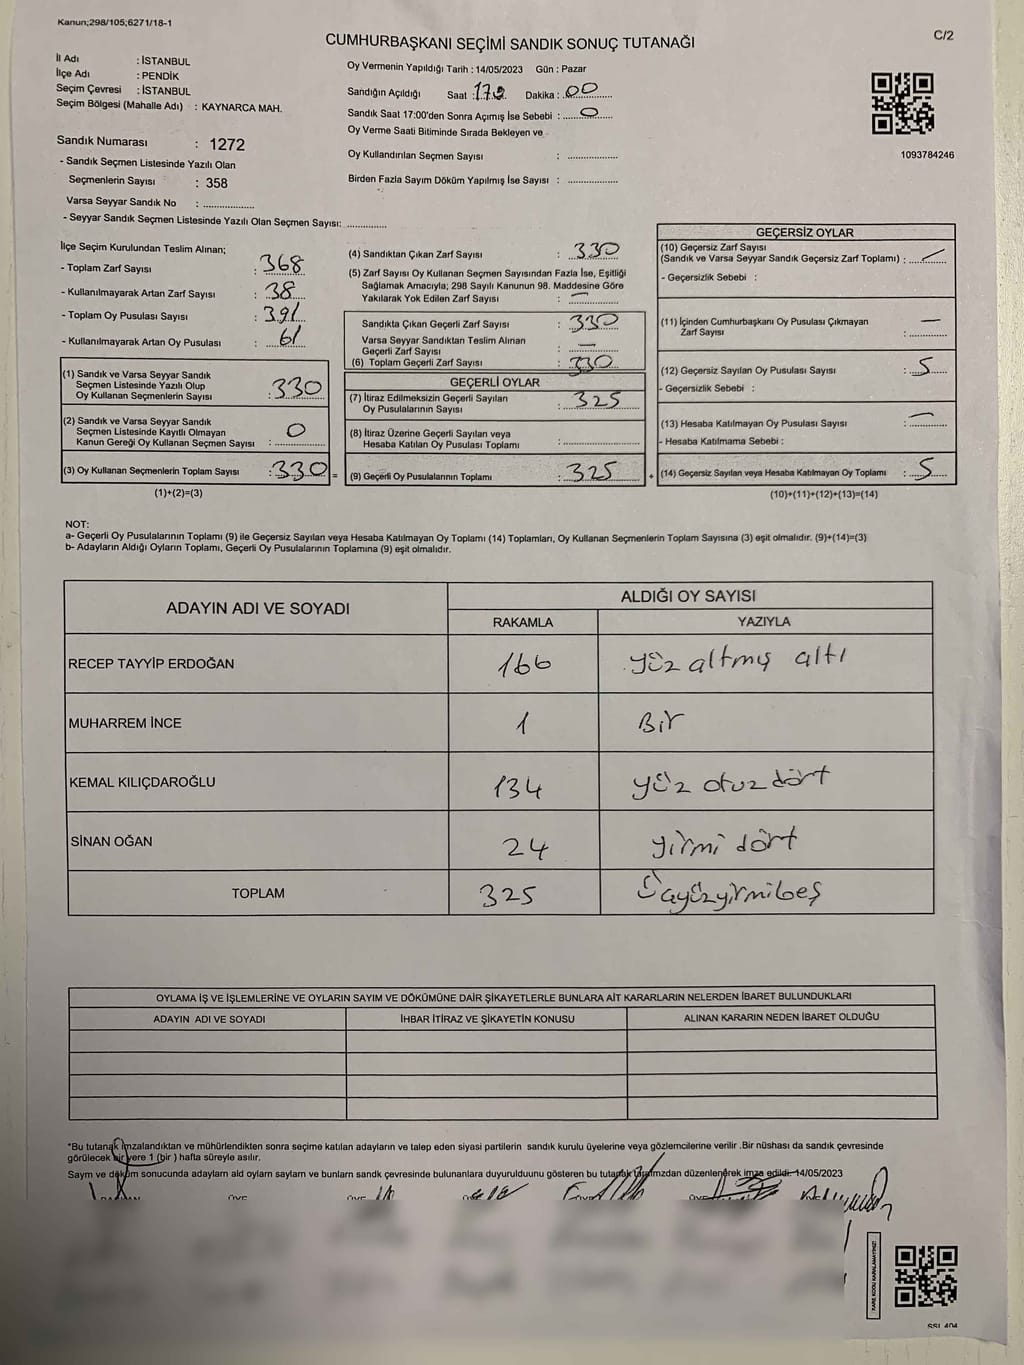 Kanun;298/105;6271/18-1
C/2
CUMHURBAŞKANI SEÇİMİ SANDIK SONUÇ TUTANAĞI
İl Adı : İSTANBUL
İlçe Adı : PENDİK
Seçim Çevresi : İSTANBUL
Seçim Bölgesi (Mahalle Adı) : KAYNARCA MAH.
Sandık Numarası : 1272
- Sandık Seçmen Listesinde Yazılı Olan
Seçmenlerin Sayısı : 358
Varsa Seyyar Sandık No :
- Seyyar Sandık Seçmen Listesinde Yazılı Olan Seçmen Sayısı:
Oy Vermenin Yapıldığı Tarih : 14/05/2023 Gün : Pazar
Sandığın Açıldığı Saat : Dakika : 00
Sandık Saat 17:00'den Sonra Açımış İse Sebebi : 0
Oy Verme Saati Bitiminde Sırada Bekleyen ve
Oy Kullandırılan Seçmen Sayısı :
Birden Fazla Sayım Döküm Yapılmış İse Sayısı :
1093784246
İlçe Seçim Kurulundan Teslim Alınan;
- Toplam Zarf Sayısı : 368
- Kullanılmayarak Artan Zarf Sayısı : 38
- Toplam Oy Pusulası Sayısı : 391
- Kullanılmayarak Artan Oy Pusulası : 61
(1) Sandık ve Varsa Seyyar Sandık
Seçmen Listesinde Yazılı Olup
Oy Kullanan Seçmenlerin Sayısı : 330
(2) Sandık ve Varsa Seyyar Sandık
Seçmen Listesinde Kayıtlı Olmayan
Kanun Gereği Oy Kullanan Seçmen Sayısı : 0
(3) Oy Kullanan Seçmenlerin Toplam Sayısı : 330 =
(1)+(2)=(3)
(4) Sandıktan Çıkan Zarf Sayısı : 330
(5) Zarf Sayısı Oy Kullanan Seçmen Sayısından Fazla İse, Eşitliği
Sağlamak Amacıyla; 298 Sayılı Kanunun 98. Maddesine Göre
Yakılarak Yok Edilen Zarf Sayısı : —
Sandıkta Çıkan Geçerli Zarf Sayısı : 330
Varsa Seyyar Sandıktan Teslim Alınan
Geçerli Zarf Sayısı : —
(6) Toplam Geçerli Zarf Sayısı : 330
GEÇERLİ OYLAR
(7) İtiraz Edilmeksizin Geçerli Sayılan
Oy Pusulalarının Sayısı : 325
(8) İtiraz Üzerine Geçerli Sayılan veya
Hesaba Katılan Oy Pusulası Toplamı :
(9) Geçerli Oy Pusulalarının Toplamı : 325 +
GEÇERSİZ OYLAR
(10) Geçersiz Zarf Sayısı
(Sandık ve Varsa Seyyar Sandık Geçersiz Zarf Toplamı) : —
- Geçersizlik Sebebi :
(11) İçinden Cumhurbaşkanı Oy Pusulası Çıkmayan
Zarf Sayısı : —
(12) Geçersiz Sayılan Oy Pusulası Sayısı : 5
- Geçersizlik Sebebi :
(13) Hesaba Katılmayan Oy Pusulası Sayısı : —
- Hesaba Katılmama Sebebi :
(14) Geçersiz Sayılan veya Hesaba Katılmayan Oy Toplamı : 5
(10)+(11)+(12)+(13)=(14)
NOT:
a- Geçerli Oy Pusulalarının Toplamı (9) ile Geçersiz Sayılan veya Hesaba Katılmayan Oy Toplamı (14) Toplamları, Oy Kullanan Seçmenlerin Toplam Sayısına (3) eşit olmalıdır. (9)+(14)=(3)
b- Adayların Aldığı Oyların Toplamı, Geçerli Oy Pusulalarının Toplamına (9) eşit olmalıdır.
ADAYIN ADI VE SOYADI ALDIĞI OY SAYISI
RAKAMLA YAZIYLA
RECEP TAYYİP ERDOĞAN 166 yüz altmış altı
MUHARREM İNCE 1 Bir
KEMAL KILIÇDAROĞLU 134 yüz otuz dört
SİNAN OĞAN 24 yirmi dört
TOPLAM 325 Üçyüzyirmibeş
OYLAMA İŞ VE İŞLEMLERİNE VE OYLARIN SAYIM VE DÖKÜMÜNE DAİR ŞİKAYETLERLE BUNLARA AİT KARARLARIN NELERDEN İBARET BULUNDUKLARI
ADAYIN ADI VE SOYADI İHBAR İTİRAZ VE ŞİKAYETİN KONUSU ALINAN KARARIN NEDEN İBARET OLDUĞU
*Bu tutanak imzalandıktan ve mühürlendikten sonra seçime katılan adayların ve talep eden siyasi partilerin sandık kurulu üyelerine veya gözlemcilerine verilir .Bir nüshası da sandık çevresinde
görülecek bir yere 1 (bir ) hafta süreyle asılır.
Saym ve döküm sonucunda adaylam ald oylam saylam ve bunlam sandk çevresinde bulunanlara duyurulduunu gösteren bu tutanak tarafmzdan düzenlenerek imza edildi. 14/05/2023
KARE KODU KARALAMAYINIZ!